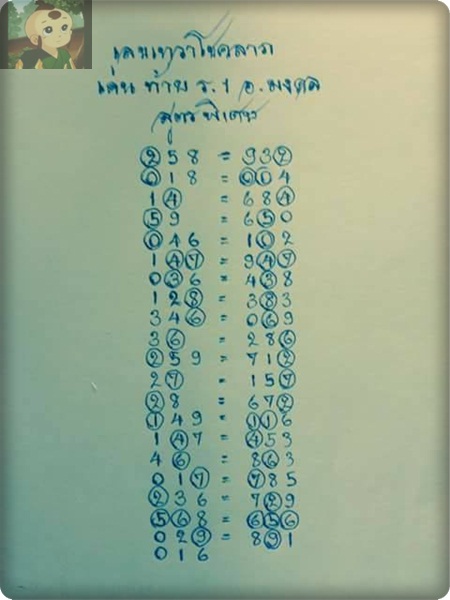 เลขเทวาโชคลาภ
เด่น ท้าย ร.1 อ.มงคล
สูตรพิเศษ
258 = 932
018 = 004
14 = 684
59 = 650
046 = 102
147 = 947
036 = 438
128 = 383
346 = 069
36 = 286
259 = 712
27 = 157
28 = 672
149 = 116
147 = 453
46 = 863
017 = 785
236 = 729
568 = 656
029 = 891
016